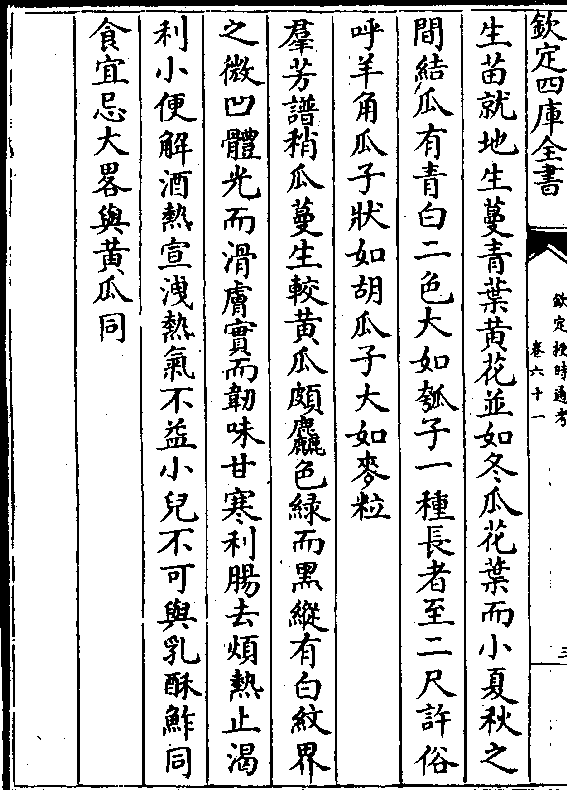 欽定四庫全書
欽定授時通考
卷六十一
三
生苗就地生蔓青葉黃花並如冬瓜花葉而小夏秋之
間結瓜有青白二色大如瓠子一種長者至二尺許俗
呼羊角瓜子狀如胡瓜子大如麥粒
羣芳譜稍瓜蔓生較黃瓜頗麤色綠而黑縱有白紋界
之微凹體光而滑膚實而韌味甘寒利腸去煩熱止渴
利小便解酒熱宣洩熱氣不益小兒不可與乳酥鮓同
食宜忌大畧與黃瓜同